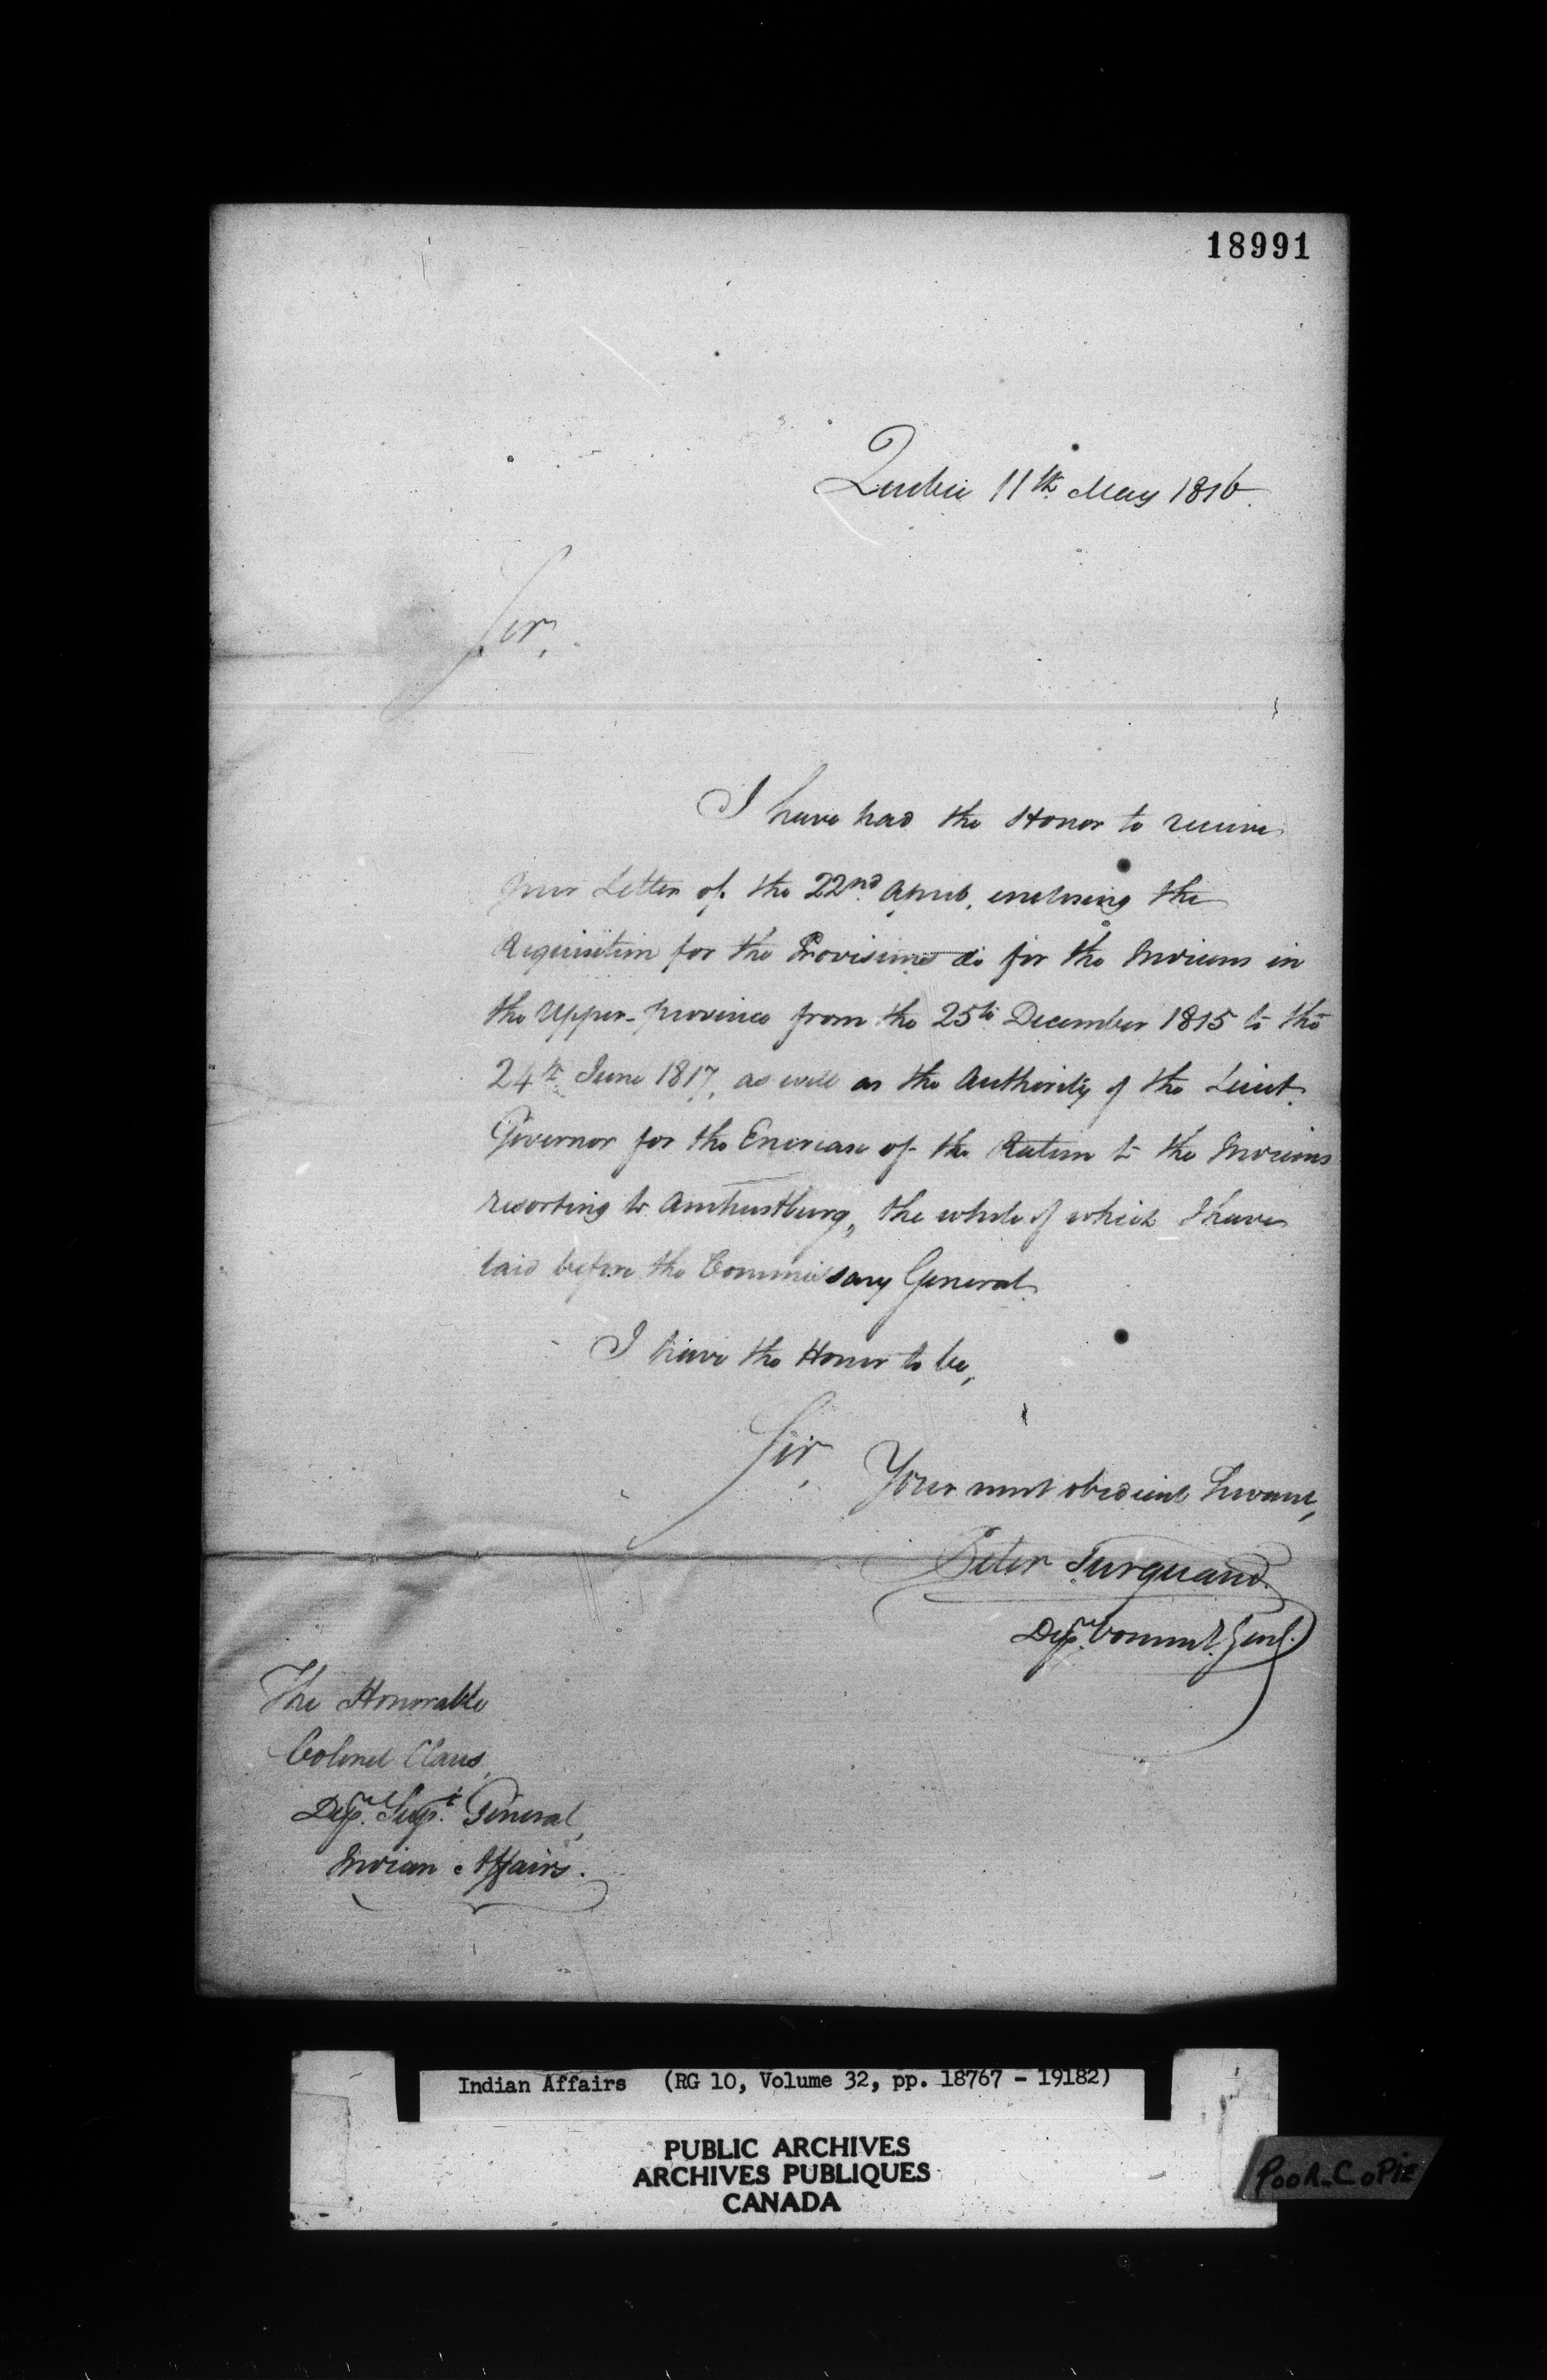 18991
Quebec 11th. May 1816.
Sir,
I have had the Honor to receive
your Letter of the 22nd. April, enclosing the
Requisition for the Provisions &c for the Indians in
the Upper-Province from the 25th December 1815 to the
24th June 1817, as well as the Authority of the Lieut.
Governor for the Encrease of the Ration to the Indians
resorting to Amherstburg, the whole of which I have
laid before the Commissary General.
I have the Honor to be,
Sir,
Your most obedient Servant,
Peter Turquand.
Depy. Commy. Genl.
The Honorable
Colonel Claus,
Depy. Supt. General,
Indian Affairs.
Indian Affairs (RG 10, Volume 32, pp. 18767 - 19182)
PUBLIC ARCHIVES
ARCHIVES PUBLIQUES
CANADA
POOR COPIE